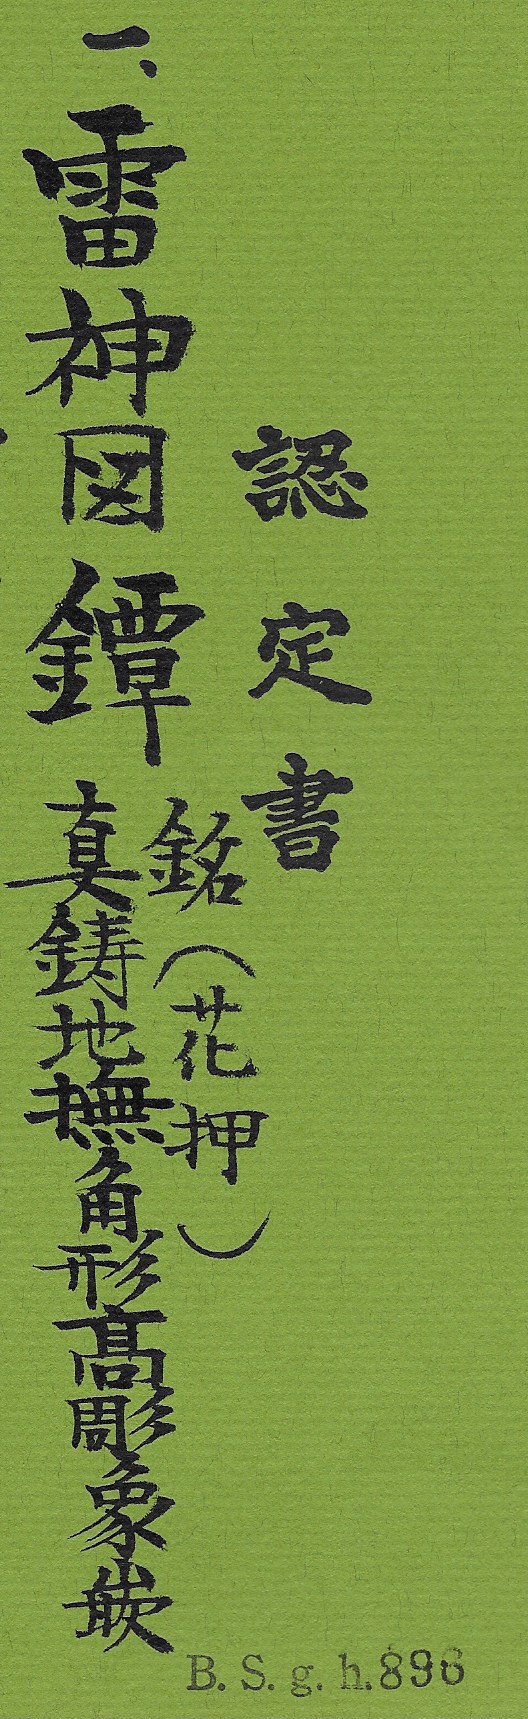 認定書
一、雷神図鐔
銘（花押）
真鋳地撫角形高彫象嵌
B. S. g. h.896